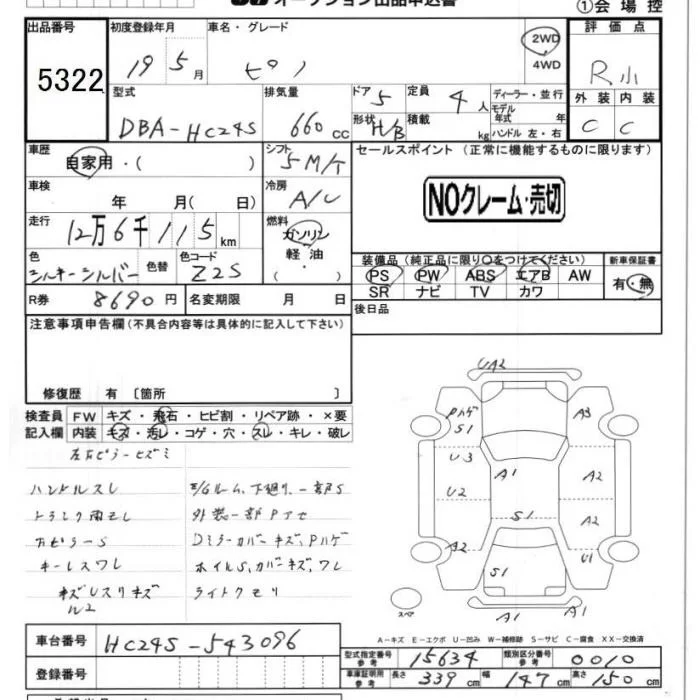 ①会場控
出品番号 初度登録年月 車名・グレード 2WD 4WD 評価点
5322 19 5月 ピノ R小
型式 排気量 ドア 5 定員 4人 ディーラー・並行 外装 内装
DBA-HC24S 660cc 形状 H/B 積載 kg モデル年式 年 ハンドル 左・右 C C
車歴 自家用・( ) シフト 5M/T セールスポイント (正常に機能するものに限ります)
車検 年 月( 日) 冷房 A/C NOクレーム・売切
走行 12万6千115km 燃料 ガソリン 軽油 ・ ( )
色 シルキーシルバー 色替 色コード Z2S
装備品 (純正品に限り○をつけてください) 新車保証書
PS PW ABS エアB AW 有・無
SR ナビ TV カワ
R券 8690円 名変期限 月 日 後日品
注意事項申告欄 (不具合内容等は具体的に記入して下さい)
修復歴 有 〔箇所 〕
検査員 FW キズ・飛石・ヒビ割・リペア跡・×要
記入欄 内装 キズ・汚レ・コゲ・穴・スレ・キレ・破レ
左右ピラーヒズミ
ハンドルスレ E/Gルーム、下廻リ、一部S
外装一部Pアセ
ピラーS Dミラーカバーキズ、Pハゲ
キーレスワレ ホイルS、カバーキズ、ワレ
ライトクモリ
UA2
Pハゲ S1 A3
U3 A1 A2
U2 S1 A2
A2 S1 U1
A1 A1
スペア
A-キズ E-エクボ U-凹み W-補修跡 S-サビ C-腐食 XX-交換済
車台番号 HC24S-543096
型式指定番号 参考 15634 類別区分番号 参考 0010
登録番号 車庫証明用 参考 長さ 339cm 幅 147cm 高さ 150cm